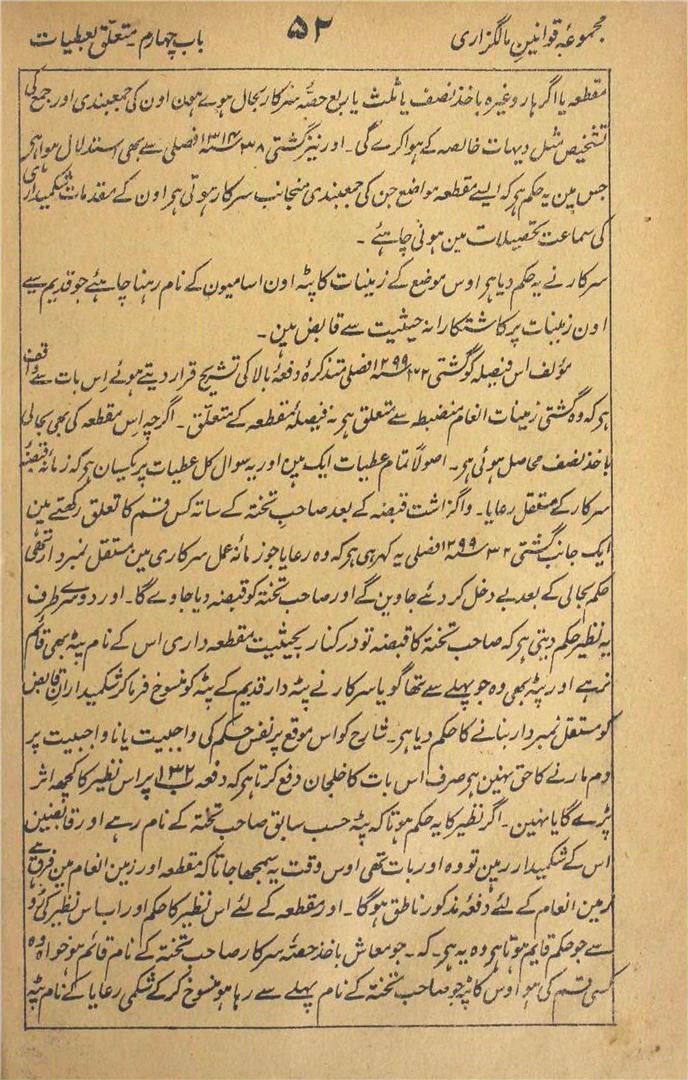 مجموعۂ قوانین مالگزاری ۵۲ باب چہارم۔ متعلق بعطیات
مقطعہ یا اگرہار وغیرہ باخذ نصف یا ثلث یا ربع حصۂ سرکار بحال ہوے ہون اون کی جمعبندی اور جمع کی
تشخیص مثل دیہات خالصہ کے ہوا کرے گی۔ اور نیز گشتی ۳۸ سنہ ۱۳۱۴ فصلی سے بھی استدلال ہوا ہی
جس مین یہ حکم ہر کہ ایسے مقطعہ مواضع جن کی جمعبندی منجانب سرکار ہوتی ہر اون کے مقدمات شکمیداری
کی سماعت تحصیلات مین ہونی چاہئے۔
سرکار نے یہ حکم دیا ہر اوس موضع کے زمینات کا پٹہ اون اسامیون کے نام رہنا چاہئے جو قدیم سے
اون زمینات پر کاشتکارانہ حیثیت سے قابض مین۔
مؤلف اس فیصلہ کو گشتی ۳۲ سنہ ۱۲۹۹ فصلی متذکرۂ دفعۂ بالا کی تشریح قرار دیتے ہوئے اس بات سے واقف
ہر کہ وہ گشتی زمینات انعام منضبطہ سے متعلق ہر نہ فیصلۂ مقطعہ کے متعلق۔ اگرچہ اس مقطعہ کی بھی بحالی
باخذ نصف محاصل ہوئی ہر۔ اصولاً تمام عطیات ایک مین اور یہ سوال کل عطیات پر یکسان ہر کہ زمانۂ قبضۂ
سرکار کے مستقل رعایا۔ واگزاشت قبضہ کے بعد صاحب تختہ کے ساتہ کس قسم کا تعلق رکھتے مین
ایک جانب گشتی ۳۲ سنہ ۱۲۹۹ فصلی یہ کہہ رہی ہر کہ وہ رعایا جو زمانہ عمل سرکاری مین مستقل نمبردار تھی
حکم بحالی کے بعد بے دخل کر دئے جاوین گے اور صاحب تختہ کو قبضہ دیا جاوے گا۔ اور دوسرے طرف
یہ نظیر حکم دیتی ہر کہ صاحب تختہ کا قبضہ تو در کنار بحیثیت مقطعہ داری اس کے نام پٹہ بھی قائم
نرہے اور پٹہ بھی وہ جو پہلے سے تھا گویا سرکار نے پٹہ دار قدیم کے پٹہ کو منسوخ فرما کر شکمیداران قابض
کو مستقل نمبردار بنانے کا حکم دیا ہر۔ شارح کو اس موقع پر نفس حکم کی واجبیت یا نا واجبیت پر
دم مارنے کا حق نہین ہر صرف اس بات کا خلجان دفع کرتا ہر کہ دفعہ ۱۳۲ پر اس نظیر کا کچھ اثر
پڑے گا یا نہین۔ اگر نظیر کا یہ حکم ہوتا کہ پٹہ حسب سابق صاحب تختہ کے نام رہے اور قابضین
اس کے شکمیدار رمین تو وہ اور بات تھی اوس وقت یہ سمجھا جاتا کہ مقطعہ اور زمین انعام مین فرق ہے
زمین انعام کے لئے دفعۂ مذکور ناطق ہوگا۔ اور مقطعہ کے لئے اس نظیر کا حکم اور اب اس نظیر کی رو
سے جو حکم قایم ہوتا ہر وہ یہ ہر۔ کہ۔ جو معاش باخذ حصۂ سرکار صاحب تختہ کے نام قائم ہو خواہ وہ
کسی قسم کی ہو اوس کا پٹہ جو صاحب تختہ کے نام پہلے سے رہا ہو منسوخ کر کے شکمی رعایا کے نام پٹہ